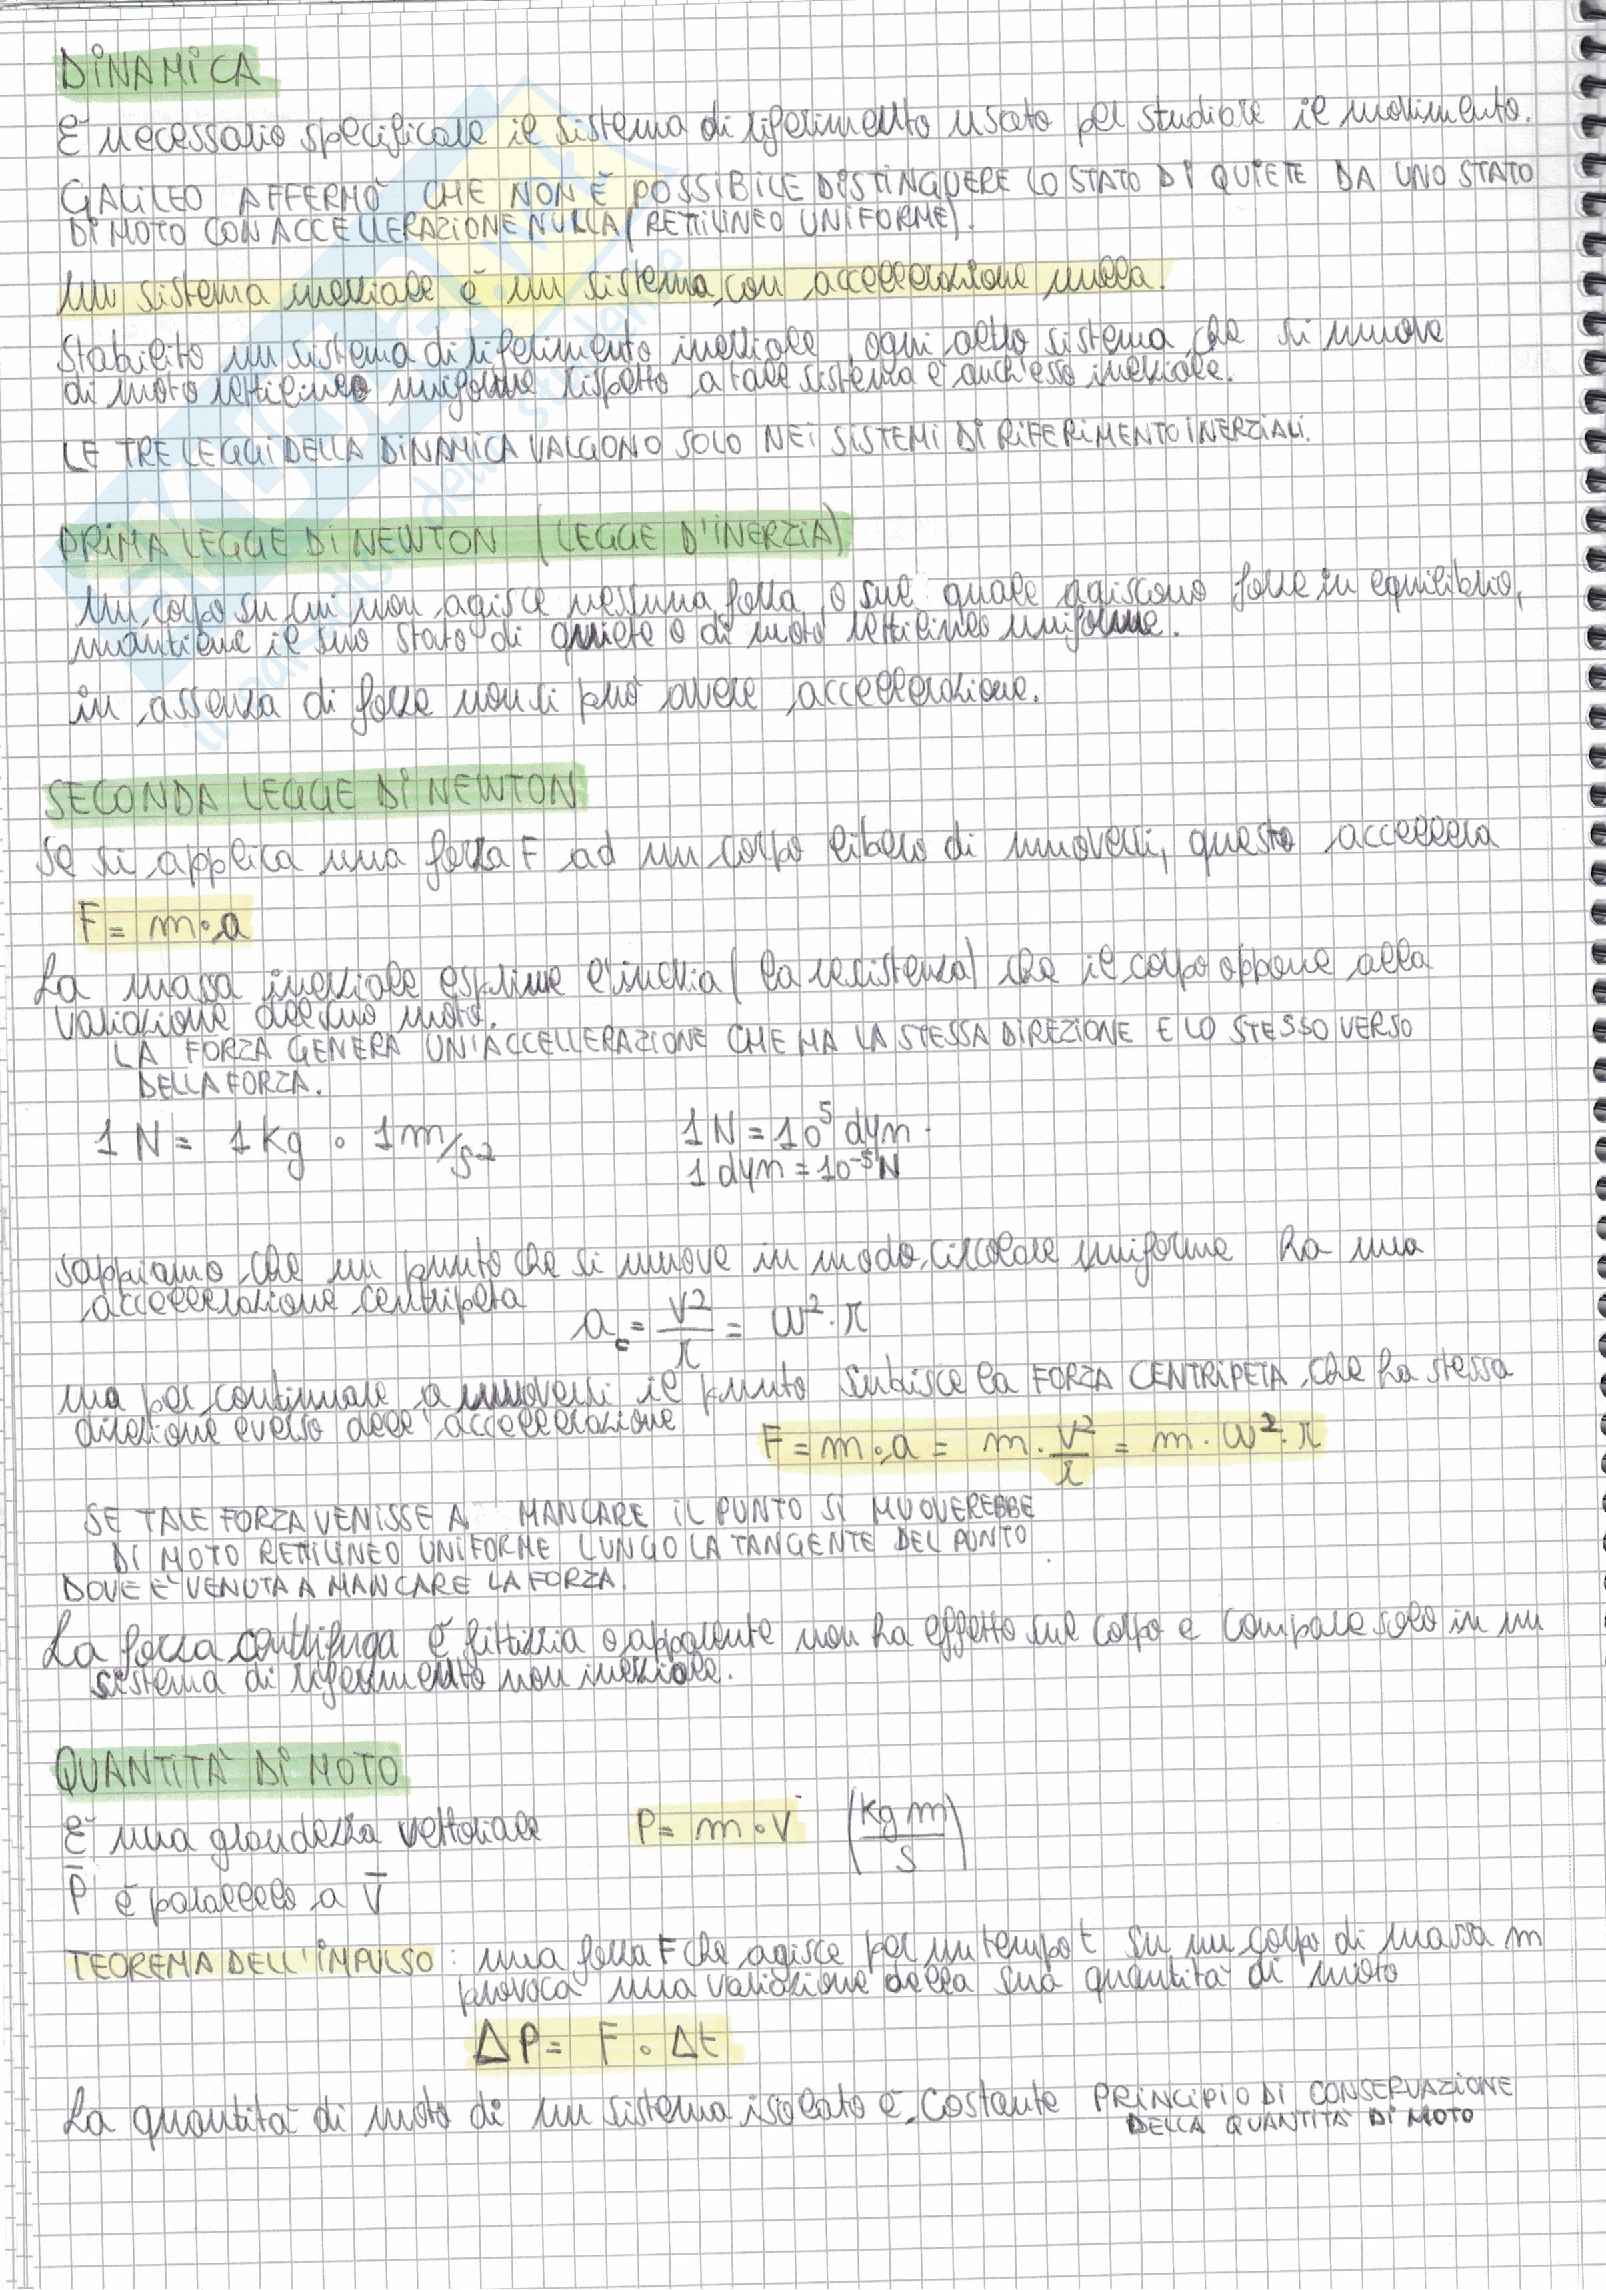 DINAMICA
È necessario specificare il sistema di riferimento usato per studiare il movimento.
GALILEO AFFERMÒ CHE NON È POSSIBILE DISTINGUERE LO STATO DI QUIETE DA UNO STATO
DI MOTO CON ACCELLERAZIONE NULLA (RETTILINEO UNIFORME).
Un sistema inerziale è un sistema con accellerazione nulla.
Stabilito un sistema di riferimento inerziale, ogni altro sistema che si muove
di moto rettilineo uniforme rispetto a tale sistema è anch'esso inerziale.
LE TRE LEGGI DELLA DINAMICA VALGONO SOLO NEI SISTEMI DI RIFERIMENTO INERZIALI.
PRIMA LEGGE DI NEWTON (LEGGE D'INERZIA)
Un corpo su cui non agisce nessuna forza, o sul quale agiscono forze in equilibrio,
mantiene il suo stato di quiete o di moto rettilineo uniforme.
in assenza di forze non si può avere accellerazione.
SECONDA LEGGE DI NEWTON
Se si applica una forza F ad un corpo libero di muoversi, questo accellera
F = m · a
La massa inerziale esprime l'inerzia (la resistenza) che il corpo oppone alla
variazione del suo moto.
LA FORZA GENERA UN'ACCELLERAZIONE CHE HA LA STESSA DIREZIONE E LO STESSO VERSO
DELLA FORZA.
1 N = 1 Kg · 1 m/s² 1 N = 10⁵ dyn
1 dyn = 10⁻⁵ N
sappiamo che un punto che si muove in modo circolare uniforme ha una
accellerazione centripeta a_c = v²/r = ω² · r
ma per continuare a muoversi il punto subisce la FORZA CENTRIPETA, che ha stessa
direzione e verso dell'accellerazione F = m · a = m · v²/r = m · ω² · r
SE TALE FORZA VENISSE A MANCARE IL PUNTO SI MUOVEREBBE
DI MOTO RETTILINEO UNIFORME LUNGO LA TANGENTE DEL PUNTO
DOVE È VENUTA A MANCARE LA FORZA.
La forza centrifuga è fittizia o apparente non ha effetto sul corpo e compare solo in un
sistema di riferimento non inerziale.
QUANTITÀ DI MOTO
È una grandezza vettoriale P = m · v (Kg m/s)
P̄ è parallelo a V̄
TEOREMA DELL'IMPULSO: una forza F che agisce per un tempo t su un corpo di massa m
provoca una variazione della sua quantità di moto
ΔP = F · Δt
La quantità di moto di un sistema isolato è costante PRINCIPIO DI CONSERVAZIONE
DELLA QUANTITÀ DI MOTO